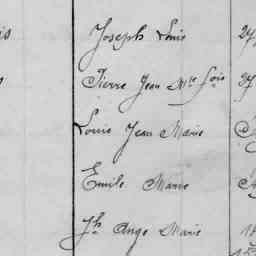 is Joseph Louis 27
Pierre Jean Mie fois 27
Louis Jean Marie
Emile Marie
Jh Ange Marie 18